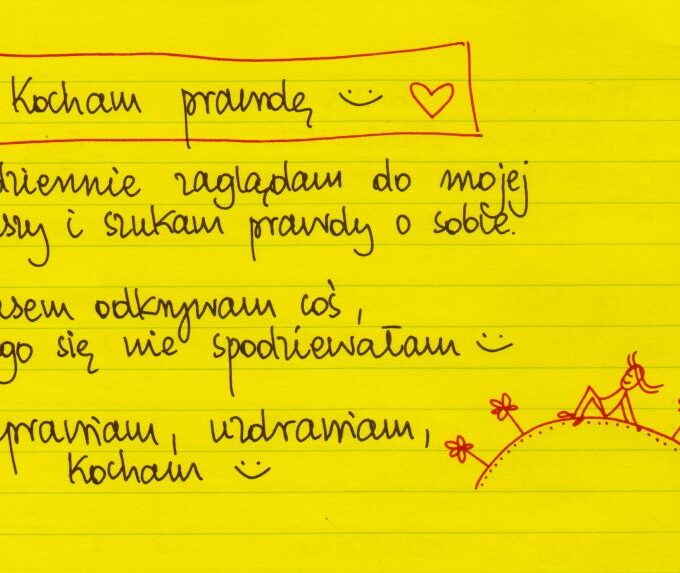 Kocham prawdę
dziennie zaglądam do mojej
szy i szukam prawdy o sobie.
asem odkrywam coś,
go się nie spodziewałam
prawiam, uzdrawiam,
Kocham